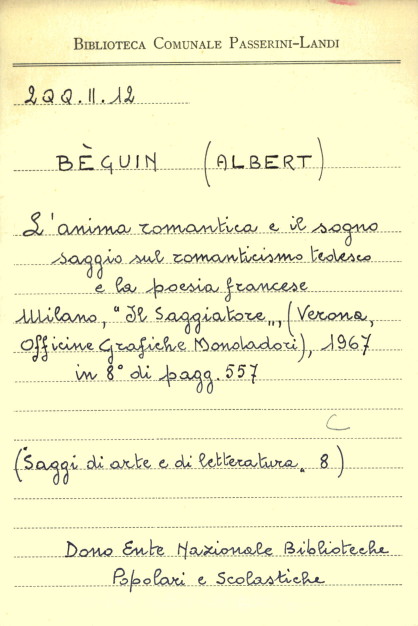 BIBLIOTECA COMUNALE PASSERINI-LANDI
2QQ.II.12
BÈGUIN (ALBERT)
L'anima romantica e il sogno
saggio sul romanticismo tedesco
e la poesia francese
Milano, "Il Saggiatore", (Verona,
Officine Grafiche Mondadori), 1967
in 8° di pagg. 557
C
(Saggi di arte e di letteratura. 8)
Dono Ente Nazionale Biblioteche
Popolari e Scolastiche